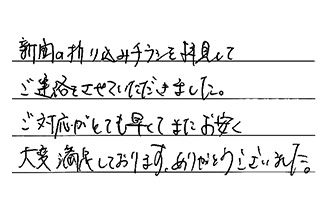 新聞の折り込みチラシを拝見して
ご連絡をさせていただきました。
ご対応がとても早くてまたお安く
大変満足しております。ありがとうございました。